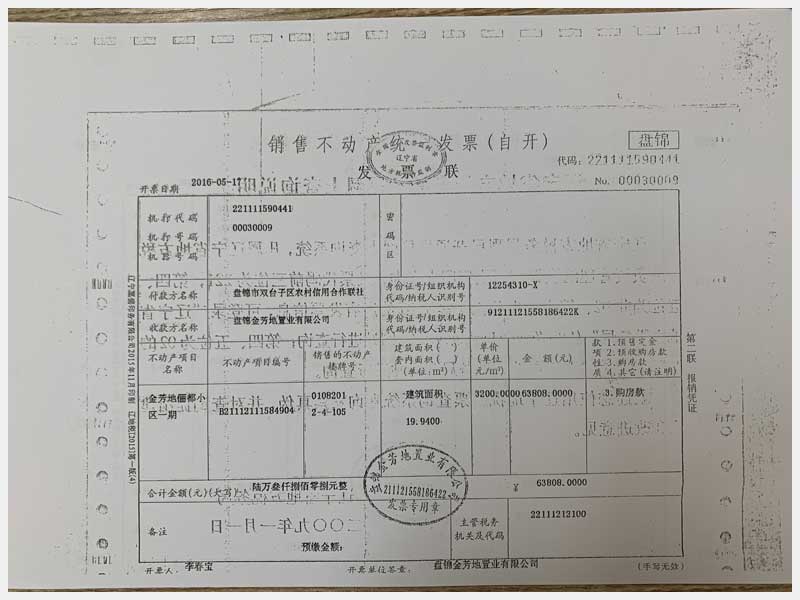 销售不动产统一发票(自开)
发票联
盘锦
代码: 221111590441
No. 00030009
开票日期 2016-05-17
机打代码 221111590441
机打号码 00030009
机器号码
密码区
付款方名称 盘锦市双台子区农村信用合作联社 身份证号/组织机构代码/纳税人识别号 12254310-X
收款方名称 盘锦金芳地置业有限公司 身份证号/组织机构代码/纳税人识别号 91211121558186422K
不动产项目名称 不动产项目编号 销售的不动产楼牌号 建筑面积( ) 套内面积( ) (单位:m²) 单价(单位元/m²) 金额(元) 款项性质 1.预售定金 2.预收购房款 3.购房款 4.其它(请注明)
金芳地俪都小区一期 B21112111584904 0108201 2-4-105 建筑面积 19.9400 3200.0000 63808.0000 3.购房款
合计金额(元)(大写) 陆万叁仟捌佰零捌元整 ¥ 63808.0000
备注 预缴金额: 主管税务机关及代码 22111212100
开票人: 李春宝 开票单位签章: 盘锦金芳地置业有限公司 (手写无效)
第二联 报销凭证
辽宁省
盘锦金芳地置业有限公司
211121558186422
发票专用章